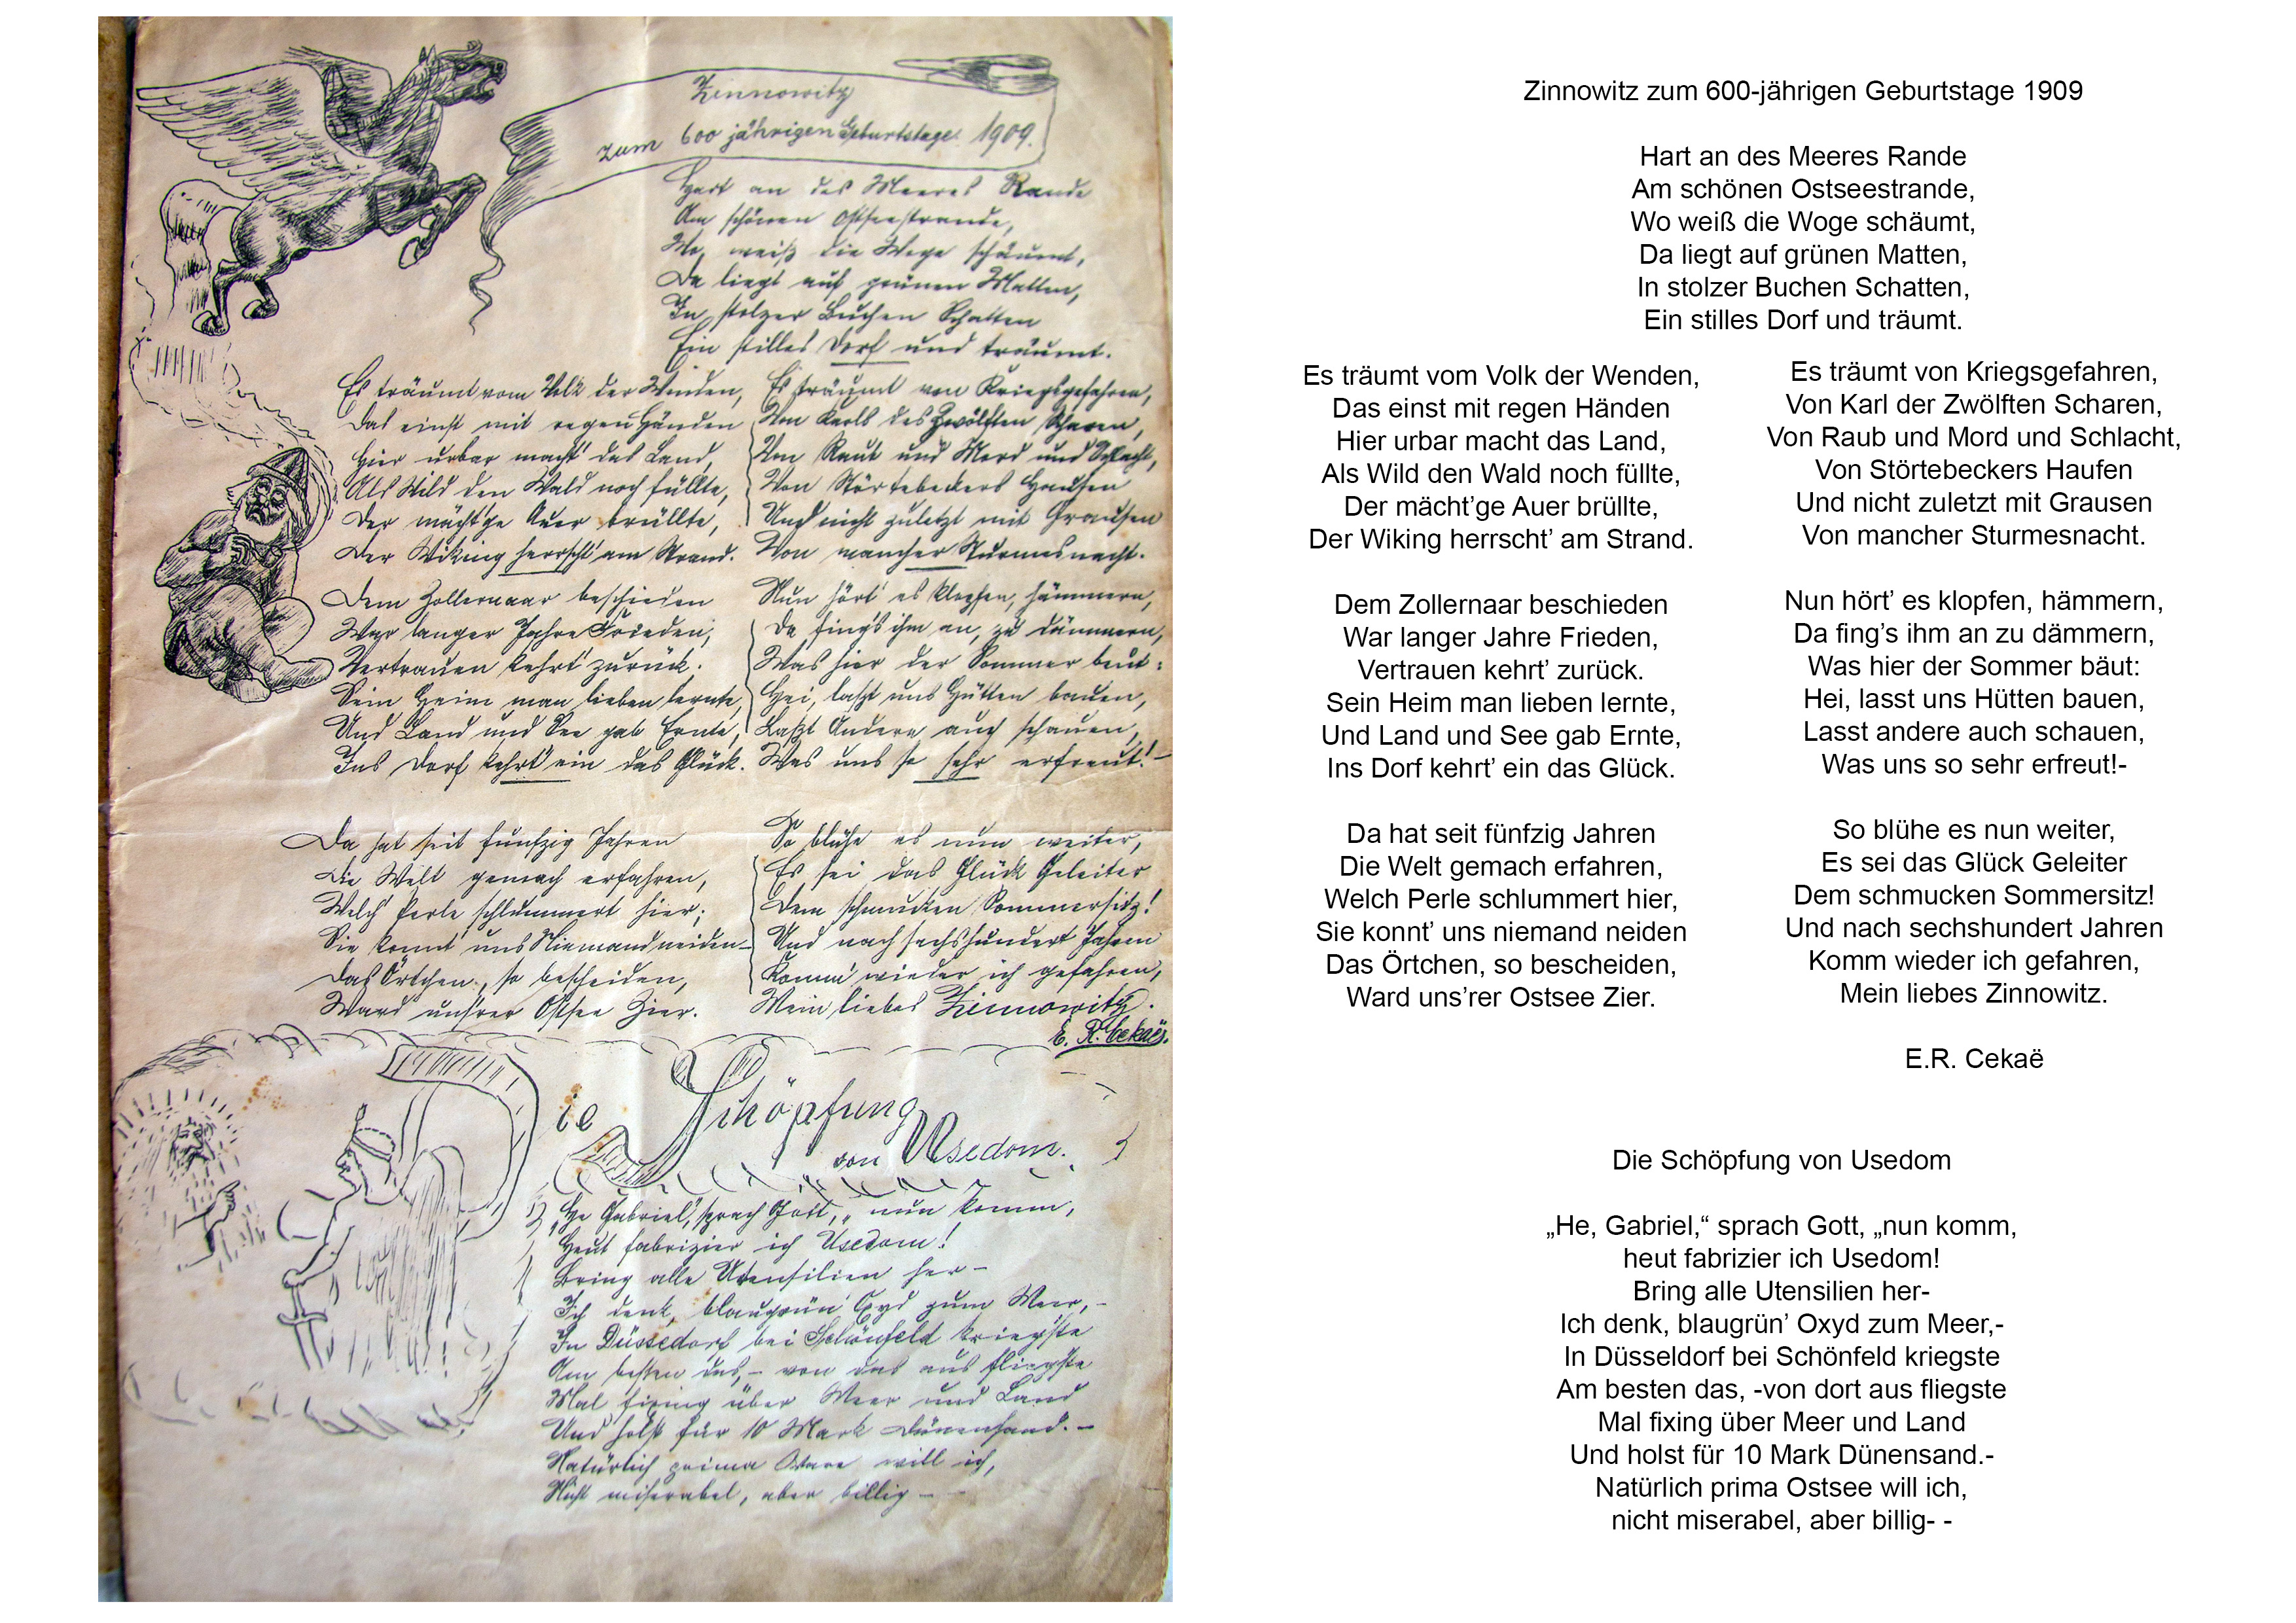 Zinnowitz
zum 600 jährigen Geburtstage 1909.
Hart an des Meeres Rande
Am schönen Ostseestrande,
Wo weiß die Woge schäumt,
Da liegt auf grünen Matten,
In stolzer Buchen Schatten
Ein stilles Dorf und träumt.
Es träumt vom Volk der Wenden,
Das einst mit regen Händen
Hier urbar macht' das Land,
Als Wild den Wald noch füllte,
Der mächt'ge Auer brüllte,
Der Wiking herrscht' am Strand.
Es träumt von Kriegsgefahren,
Von Karls des Zwölften Scharen,
Von Raub und Mord und Schlacht,
Von Störtebeckers Haufen
Und nicht zuletzt mit Grausen
Von mancher Sturmesnacht.
Dem Zolleraaar beschieden
War langer Jahre Frieden,
Vertrauen kehrt' zurück.
Sein Heim man lieben lernte,
Und Land und See gab Ernte,
Ins Dorf kehrt' ein das Glück.
Nun hört' es klopfen, hämmern,
Da fing's ihm an, zu dämmern,
Was hier der Sommer beut:
Hei, laßt uns Hütten bauen,
Laßt Andere auch schauen,
Was uns so sehr erfreut! –
Da hat seit fünfzig Jahren
Die Welt gemach erfahren,
Welch' Perle schlummert hier;
Sie konnt' uns Niemand neiden –
Das Örtchen, so bescheiden,
Ward uns'rer Ostsee Zier.
So blühe es nun weiter,
Es sei das Glück Geleiter
Dem schmucken Sommersitz!
Und nach sechshundert Jahren
Komm' wieder ich gefahren,
Mein liebes Zinnowitz.
E. R. Cekaë.
Die Schöpfung
von Usedom.
„He Gabriel,“ sprach Gott, „nun komm,
Heut fabrizier ich Usedom!
Bring alle Utensilien her –
Ich denk, blaugrün' Oxyd zum Meer, –
In Düssedorf bei Schönfeld kriegste
Am besten das, – von das aus fliegste
Mal fixing über Meer und Land
Und holst für 10 Mark Dünensand. –
Natürlich prima Ware will ich,
Nicht miserabel, aber billig – –
Zinnowitz zum 600-jährigen Geburtstage 1909
Hart an des Meeres Rande
Am schönen Ostseestrande,
Wo weiß die Woge schäumt,
Da liegt auf grünen Matten,
In stolzer Buchen Schatten,
Ein stilles Dorf und träumt.
Es träumt vom Volk der Wenden,
Das einst mit regen Händen
Hier urbar macht das Land,
Als Wild den Wald noch füllte,
Der mächt’ge Auer brüllte,
Der Wiking herrscht’ am Strand.
Es träumt von Kriegsgefahren,
Von Karl der Zwölften Scharen,
Von Raub und Mord und Schlacht,
Von Störtebeckers Haufen
Und nicht zuletzt mit Grausen
Von mancher Sturmesnacht.
Dem Zollernaar beschieden
War langer Jahre Frieden,
Vertrauen kehrt’ zurück.
Sein Heim man lieben lernte,
Und Land und See gab Ernte,
Ins Dorf kehrt’ ein das Glück.
Nun hört’ es klopfen, hämmern,
Da fing’s ihm an zu dämmern,
Was hier der Sommer bäut:
Hei, lasst uns Hütten bauen,
Lasst andere auch schauen,
Was uns so sehr erfreut!-
Da hat seit fünfzig Jahren
Die Welt gemach erfahren,
Welch Perle schlummert hier,
Sie konnt’ uns niemand neiden
Das Örtchen, so bescheiden,
Ward uns’rer Ostsee Zier.
So blühe es nun weiter,
Es sei das Glück Geleiter
Dem schmucken Sommersitz!
Und nach sechshundert Jahren
Komm wieder ich gefahren,
Mein liebes Zinnowitz.
E.R. Cekaë
Die Schöpfung von Usedom
„He, Gabriel,“ sprach Gott, „nun komm,
heut fabrizier ich Usedom!
Bring alle Utensilien her-
Ich denk, blaugrün’ Oxyd zum Meer,-
In Düsseldorf bei Schönfeld kriegste
Am besten das, -von dort aus fliegste
Mal fixing über Meer und Land
Und holst für 10 Mark Dünensand.-
Natürlich prima Ostsee will ich,
nicht miserabel, aber billig- -